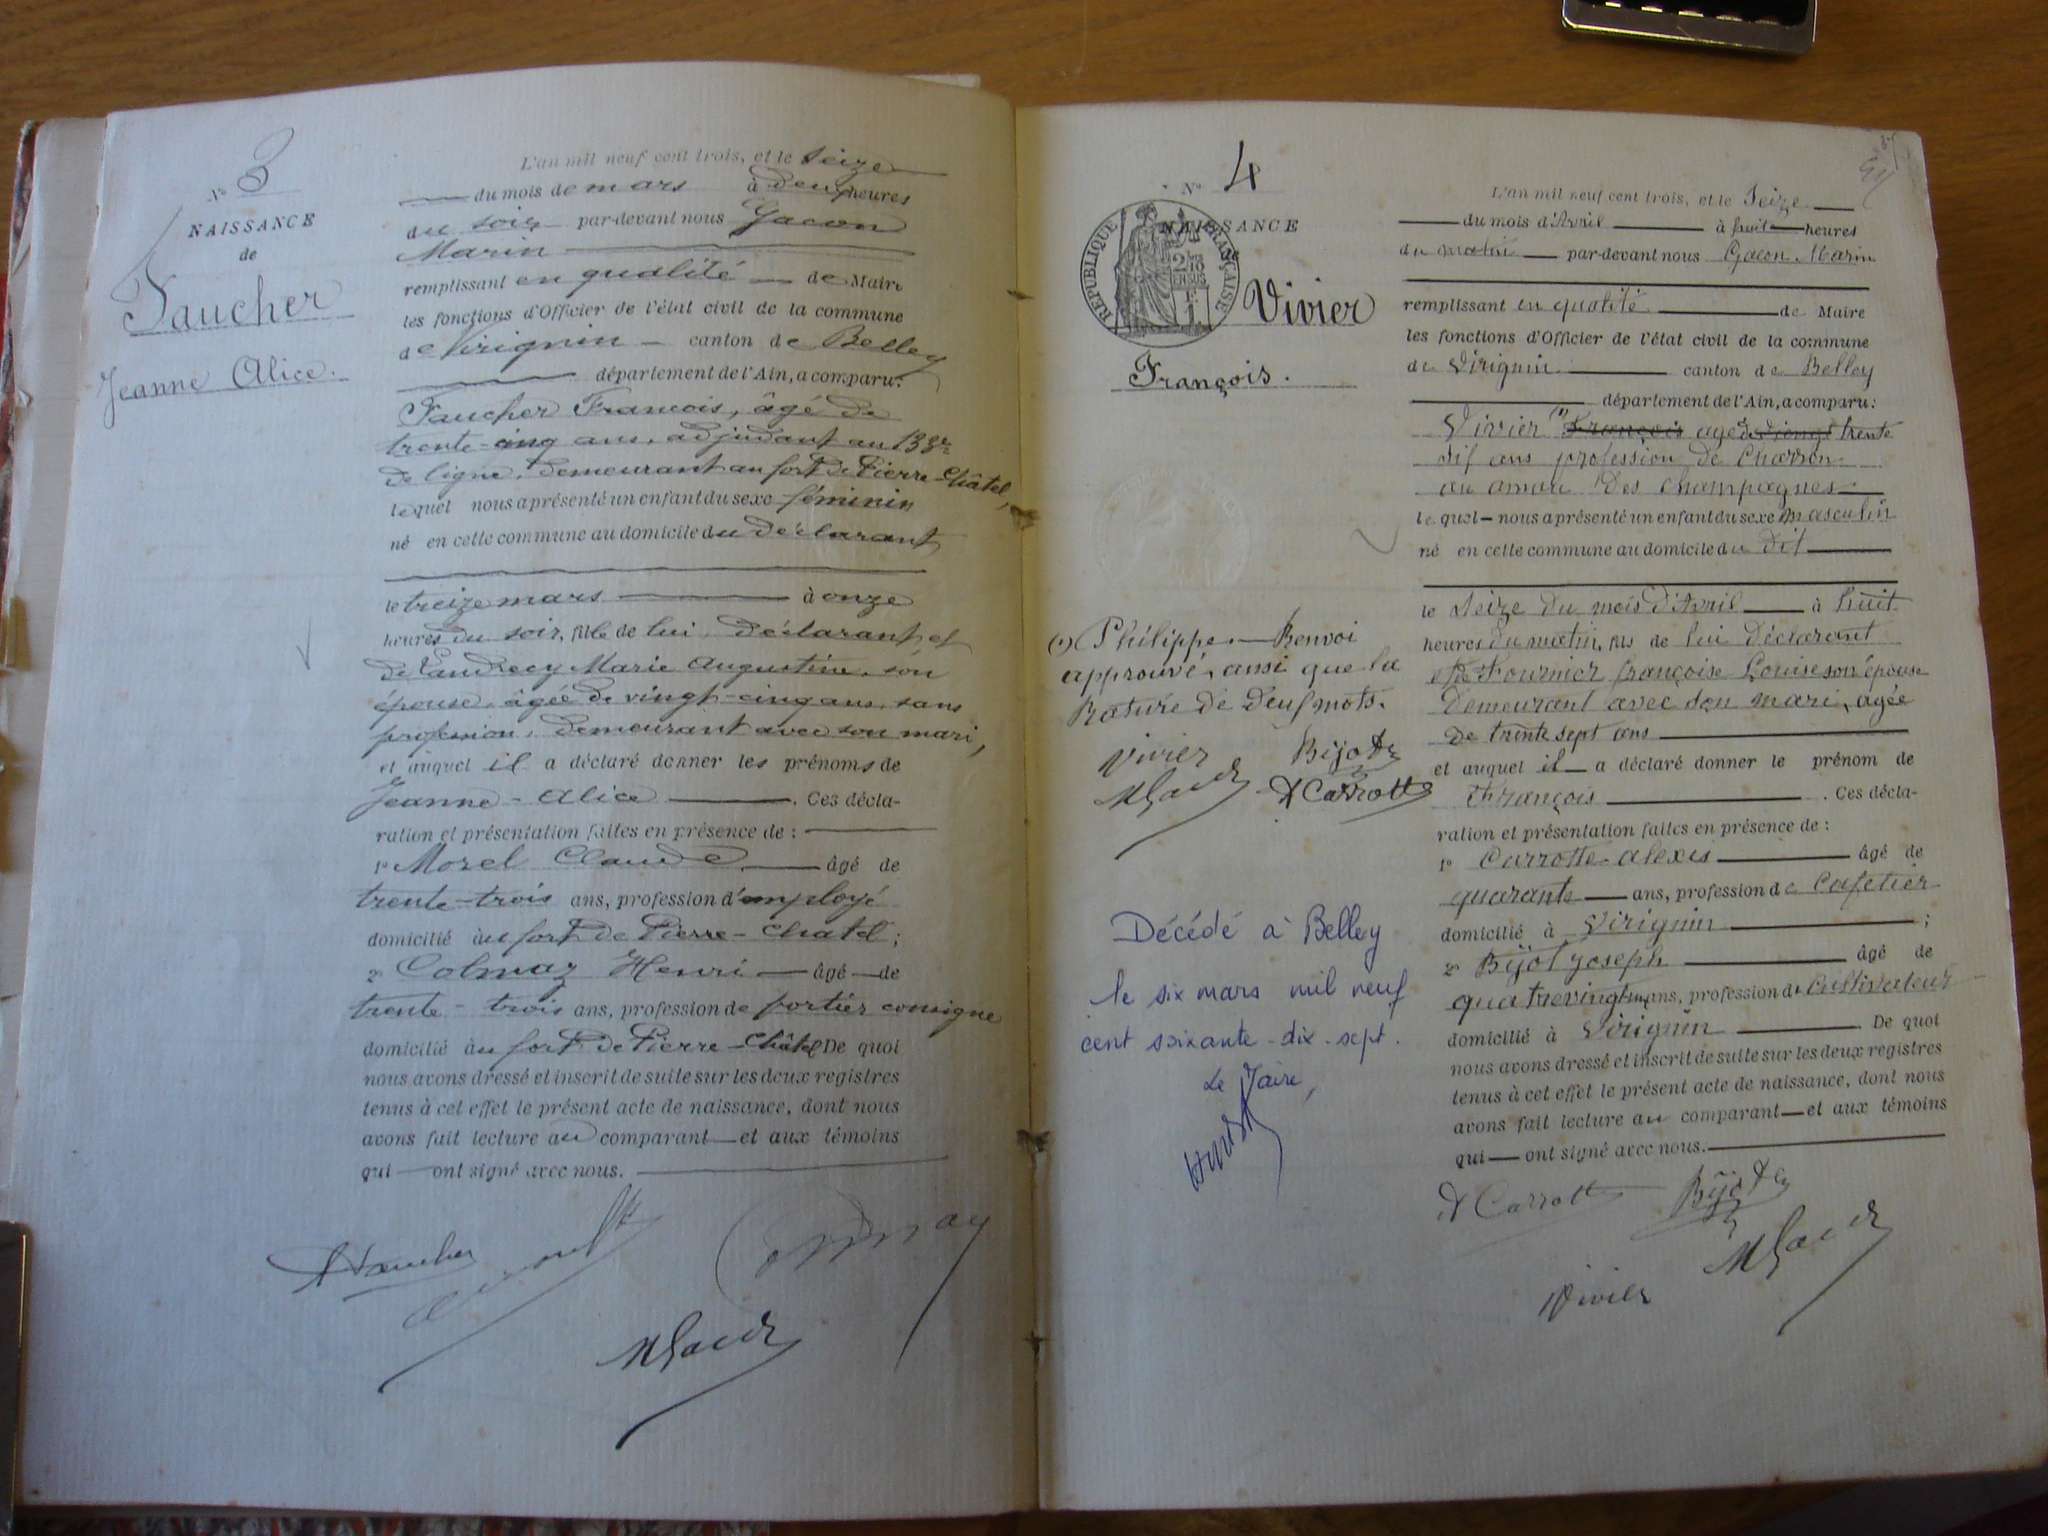 N° 3
NAISSANCE
de
Faucher
Jeanne Alice.
L'an mil neuf cent trois, et le seize
du mois de mars à deux heures
du soir par-devant nous Gacon
Marin
remplissant en qualité de Maire
les fonctions d'Officier de l'état civil de la commune
de Virignin canton de Belley
département de l'Ain, a comparu:
Faucher François, âgé de
trente-cinq ans, adjudant au 133e
de ligne, demeurant au fort de Pierre-Châtel,
lequel nous a présenté un enfant du sexe féminin
né en cette commune au domicile du déclarant
le treize mars à onze
heures du soir, fille de lui, déclarant et
de Marie Augustine, son
épouse, âgée de vingt-cinq ans, sans
profession, demeurant avec son mari,
et auquel il a déclaré donner les prénoms de
Jeanne-Alice. Ces décla-
ration et présentation faites en présence de :
1° Morel Claude, âgé de
trente-trois ans, profession d'employé
domicilié au fort de Pierre-Châtel ;
2° Colmaz Henri âgé de
trente-trois ans, profession de portier consigne
domicilié au fort de Pierre-Châtel De quoi
nous avons dressé et inscrit de suite sur les deux registres
tenus à cet effet le présent acte de naissance, dont nous
avons fait lecture au comparant et aux témoins
qui ont signé avec nous.
Faucher
MGacon
N° 4
NAISSANCE
RÉPUBLIQUE FRANÇAISE
Vivier
François.
L'an mil neuf cent trois, et le Seize
du mois d'Avril à huit heures
du matin par-devant nous Gacon Marin
remplissant en qualité de Maire
les fonctions d'Officier de l'état civil de la commune
de Virignin canton de Belley
département de l'Ain, a comparu:
Vivier (1) François age de trente
dif ans profession de Charron
au amau des champagnes
lequel nous a présenté un enfant du sexe masculin
né en cette commune au domicile du dit
le Seize du mois d'Avril à huit
heures du matin, fils de lui déclarant
et de Fournier françoise Louise son épouse
demeurant avec son mari, agée
de trente sept ans
et auquel il a déclaré donner le prénom de
François. Ces décla-
ration et présentation faites en présence de :
1° Carrotte alexis âgé de
quarante ans, profession de Cafetier
domicilié à Virignin ;
2° Bijot Joseph âgé de
quatrevingt ans, profession de Cultivateur
domicilié à Virignin De quoi
nous avons dressé et inscrit de suite sur les deux registres
tenus à cet effet le présent acte de naissance, dont nous
avons fait lecture au comparant et aux témoins
qui ont signé avec nous.
(1) Philippe. Renvoi
approuvé, ainsi que la
Rature de deux mots.
Vivier Bijot
MGacon A Carrotte
Décédé à Belley
le six mars mil neuf
cent soixante-dix-sept.
Le Maire,
A Carrotte Bijot
MGacon
Vivier